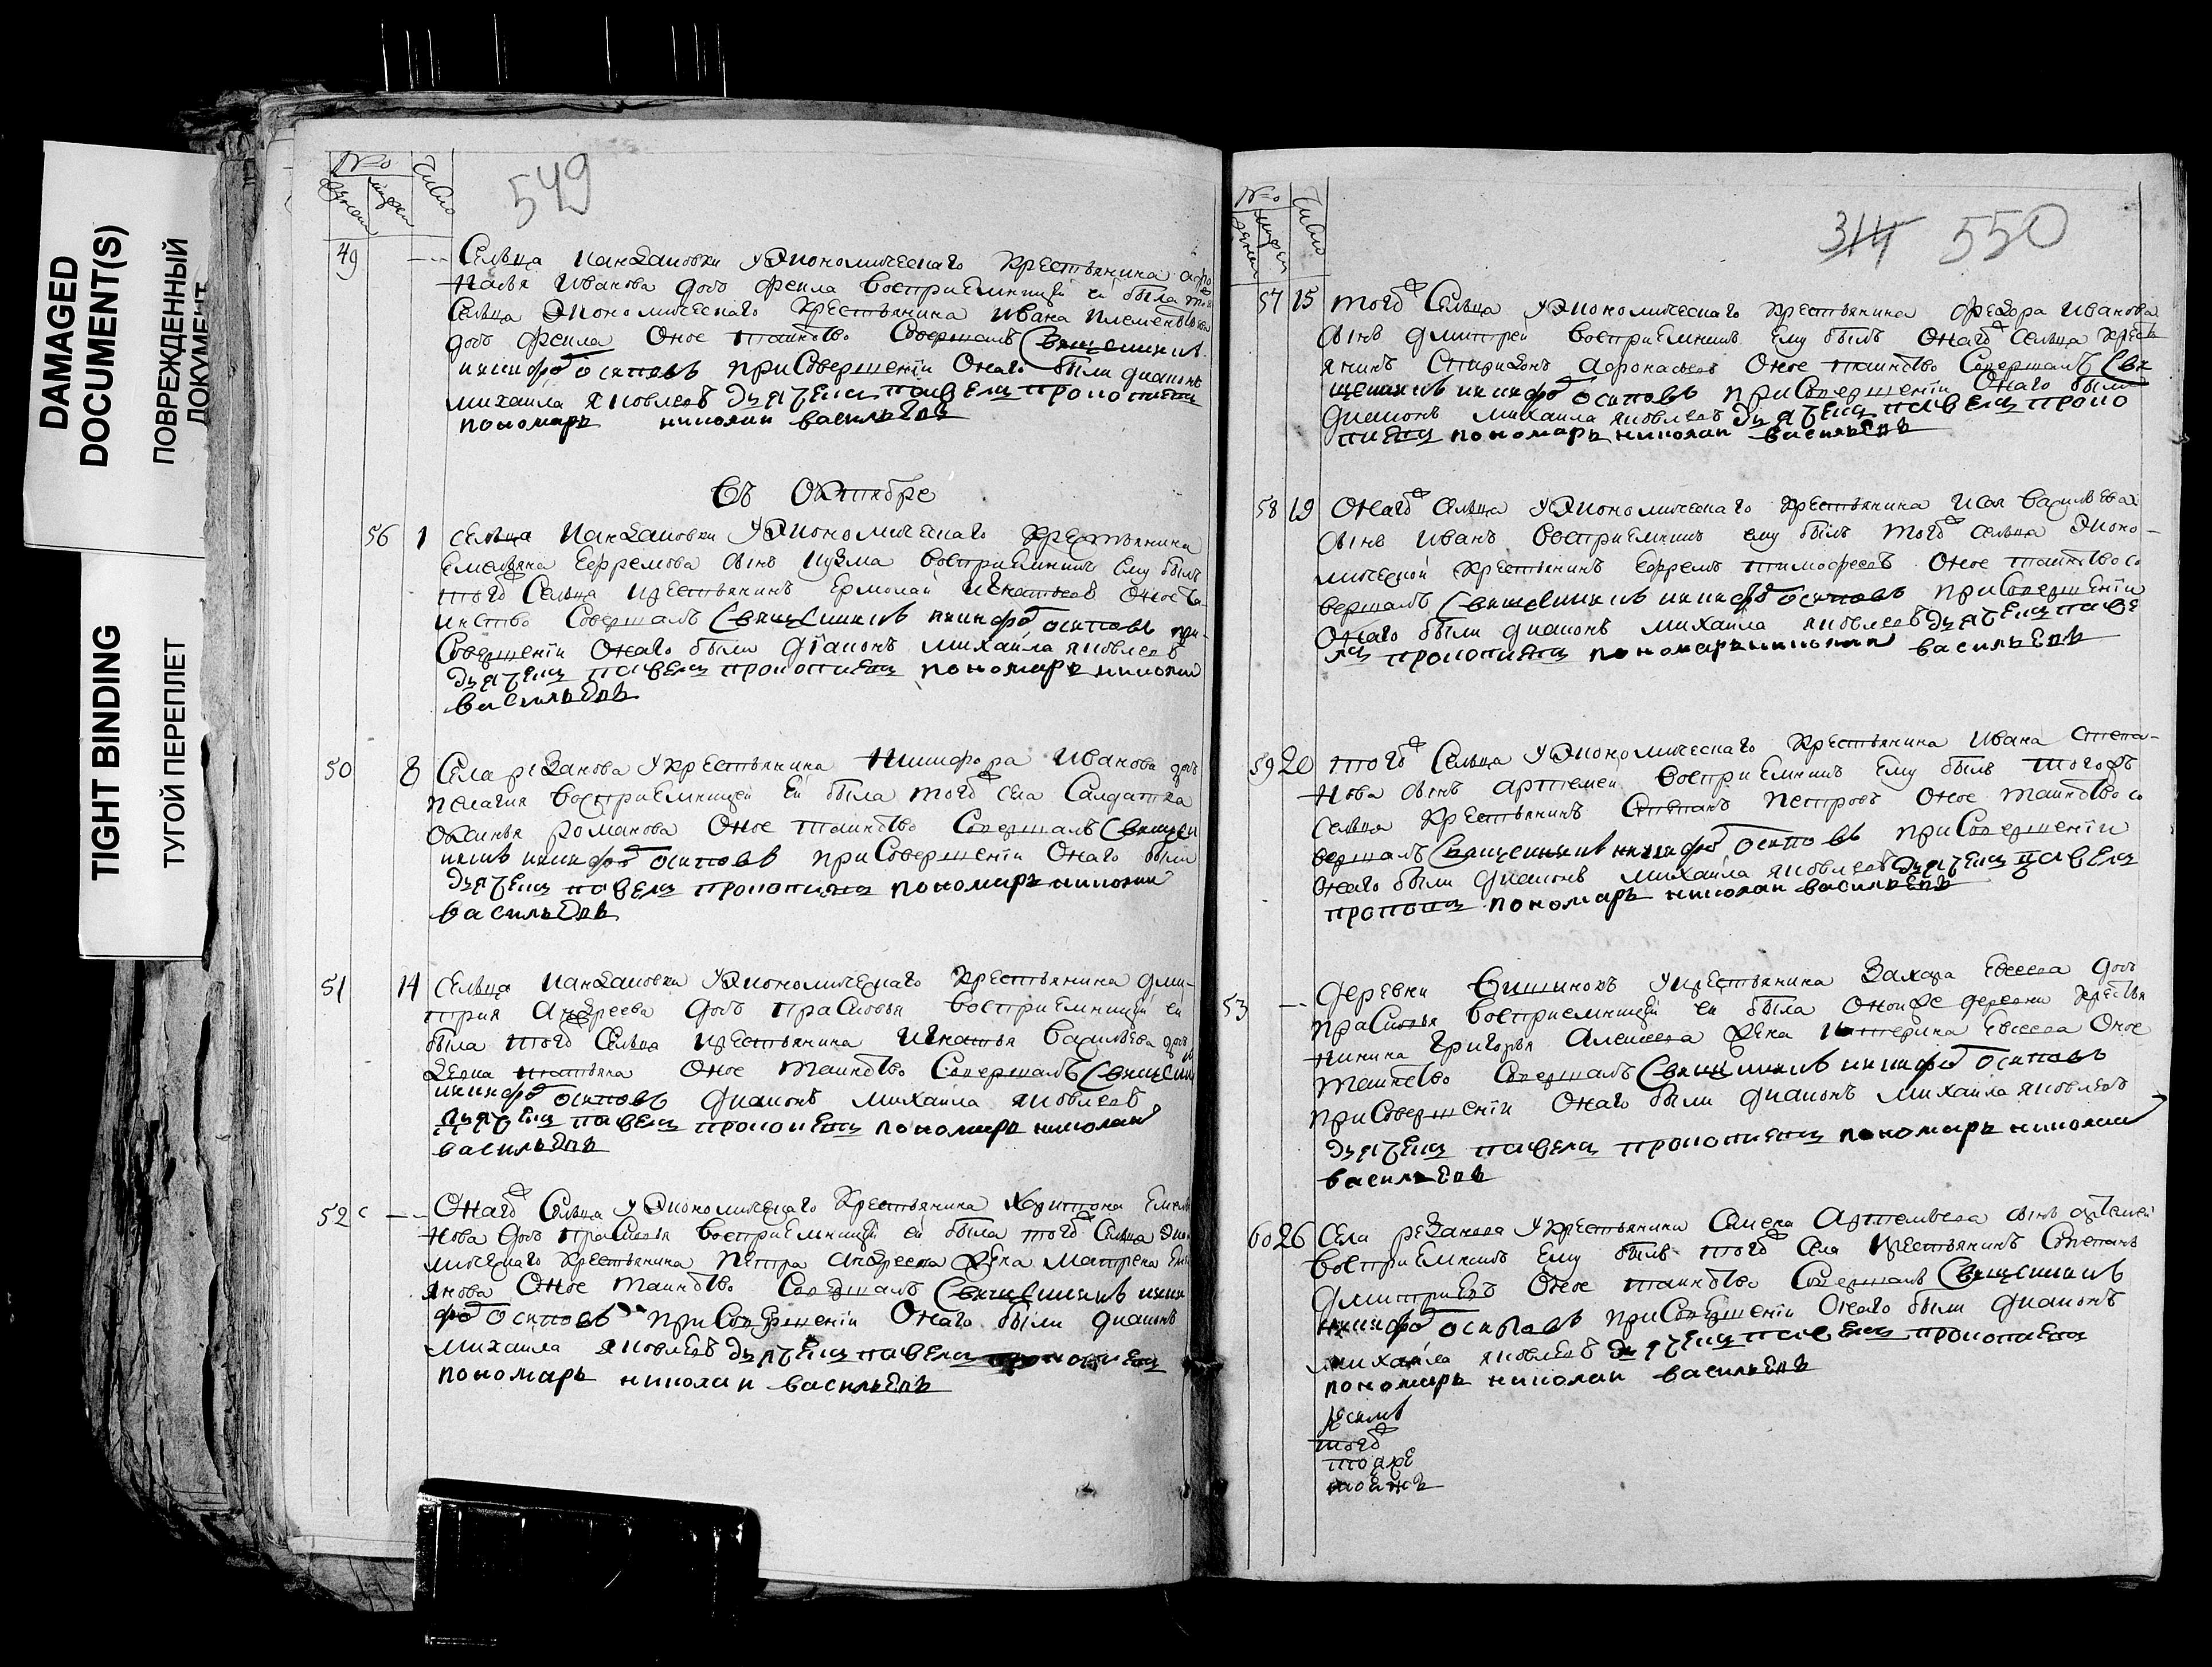 DAMAGED
DOCUMENT(S)
ПОВРЕЖДЕННЫЙ
ДОКУМЕНТ
TIGHT BINDING
ТУГОЙ ПЕРЕПЛЕТ
№о
Число
549
49 --- Сельца уэкономическаго крестьянина
Иванова дочь фекла восприемницей ей была
Сельца экономическаго крестьянина ивана
дочь фекла Оное таинство Совершалъ Священникъ
никифоръ осиповъ приСовершеніи Онаго были диаконъ
михаила яковлевъ дьячекъ павелъ прокопиевъ
пономарь николаи васильевъ
Въ Октябре
56 1 сельца уэкономическаго крестьянина
Емельяна Ефремова сынъ кузма восприемникъ ему былъ
того Сельца крестьянинъ Ермолай Игнатьевъ Оное та-
инство Совершалъ Священникъ никифоръ осиповъ при
Совершеніи Онаго были діаконъ михаила яковлевъ
дьячекъ павелъ прокопиевъ пономарь николаи
васильевъ
50 8 Села резанова укрестьянина Никифора Иванова дочь
пелагия восприемницей ей была того села Салдатка
Оксинья романова Оное таинство Совершалъ Священ
никъ никифоръ осиповъ приСовершеніи Онаго были
дьячекъ павелъ прокопиевъ пономарь николаи
васильевъ
51 14 Сельца уэкономическаго крестьянина дми-
трия Андреева дочь прасковья восприемницей ей
была того Сельца крестьянина Игнатья Васильева
Оное таинство Совершалъ Священникъ
никифоръ осиповъ диаконъ михаила яковлевъ
дьячекъ павелъ прокопиевъ пономарь николаи
васильевъ
52 --- Онаго Сельца уэкономическаго крестьянина харитона Емелья
нова дочь прасковья восприемницей ей была того Сельца эконо
мическаго крестьянина петра андреева жена матрена
Оное таинство Совершалъ Священникъ ники
форъ осиповъ приСовершеніи Онаго были диаконъ
михаила яковлевъ дьячекъ павелъ прокопиевъ
пономарь николаи васильевъ
№о
Число
314 550
57 15 того Сельца уэкономическаго крестьянина федора иванова
сынъ дмитрей восприемникъ ему былъ Онаго Сельца кресть
янинъ Спиридонъ афонасьевъ Оное таинство Совершалъ Свя
щенникъ никифоръ осиповъ приСовершеніи Онаго были
диаконъ михаила яковлевъ дьячекъ павелъ проко
пиевъ пономарь николаи васильевъ
58 19 Онаго сельца уэкономическаго крестьянина васильева
сынъ иванъ восприемникъ ему былъ того сельца эконо-
мической крестьянинъ Ефремъ тимофеевъ Оное таинство со
вершалъ Священникъ никифоръ осиповъ приСовершеніи
Онаго были диаконъ михаила яковлевъ дьячекъ паве
лъ прокопиевъ пономарь николаи васильевъ
59 20 того Сельца уэкономическаго крестьянина ивана степа-
нова сынъ артемей восприемникъ ему былъ тогожъ
сельца крестьянинъ Степанъ петровъ Оное таинство со
вершалъ Священникъ никифоръ осиповъ приСовершеніи
Онаго были диаконъ михаила яковлевъ дьячекъ павелъ
пономарь николаи васильевъ
53 --- деревни укрестьянина Захара Евсеева дочь
прасковья восприемницей ей была Оноиже деревни крестья
нинина григорья Алексеева жена катерина Евсеева Оное
таинство Совершалъ Священникъ никифоръ осиповъ
приСовершеніи Онаго были диаконъ михаила яковлевъ
дьячекъ павелъ прокопиевъ пономарь николаи
васильевъ
60 26 Села резанова укрестьянина Артемьева сынъ артемей
восприемникъ ему былъ того села крестьянинъ Степанъ
дмитриевъ Оное таинство Совершалъ Священникъ
никифоръ осиповъ приСовершеніи Онаго были диаконъ
михаила яковлевъ дьячекъ павелъ прокопиевъ
пономарь николаи васильевъ
того
тогоже